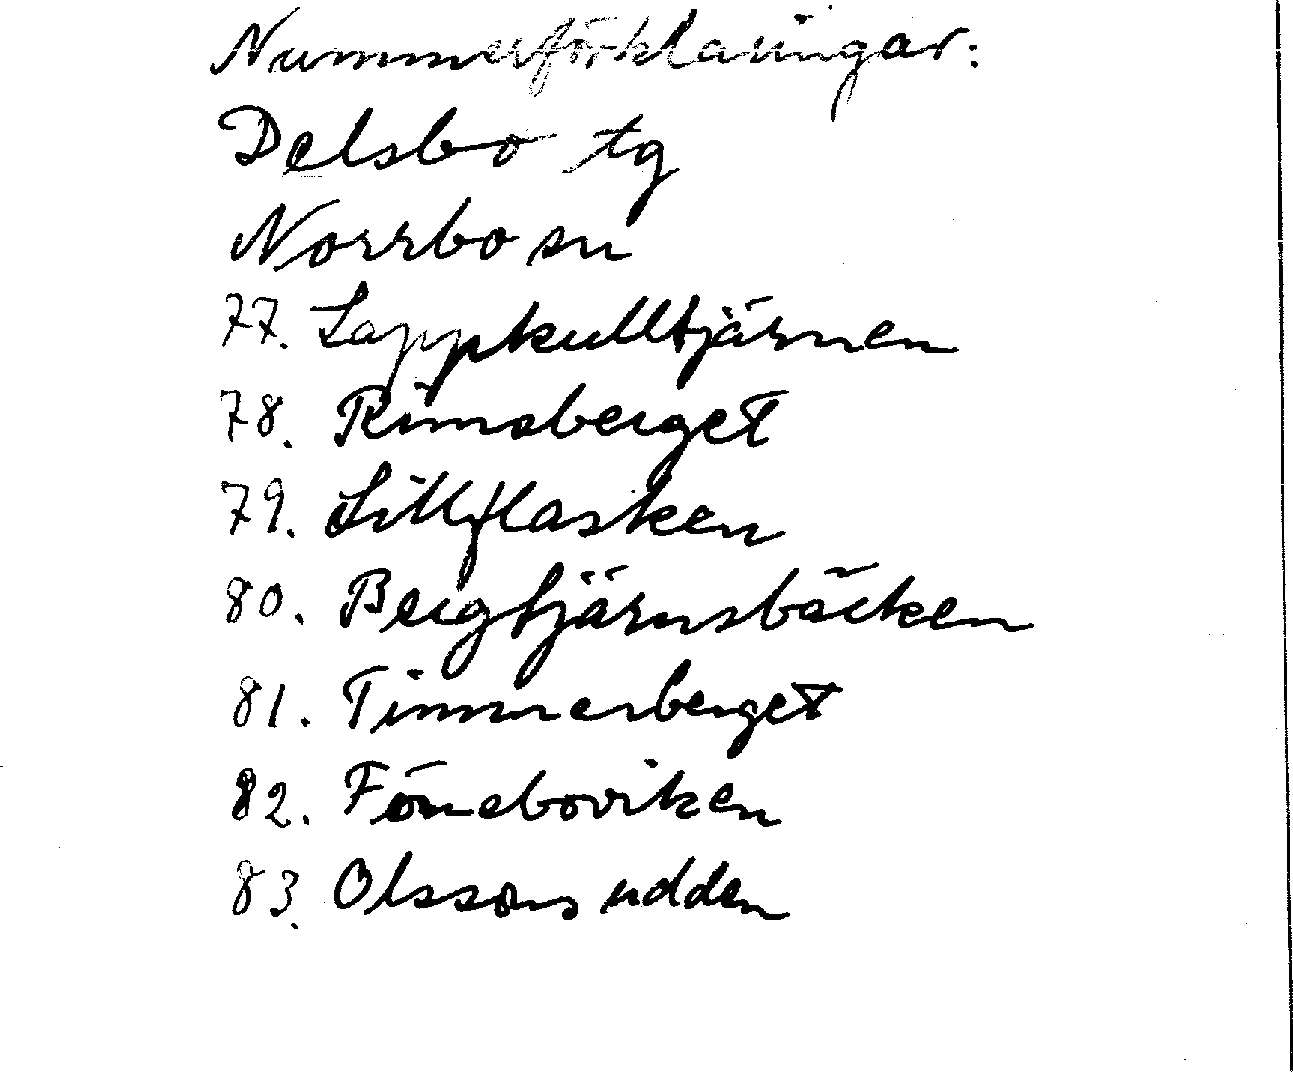 Nummerförklaringar:
Delsbo tg
Norrbo sn
77. Lappkulltjärnen
78. Rimsberget
79. Lillflasken
80. Bergtjärnsbäcken
81. Timmerberget
82. Föneboviken
83. Olssons udden